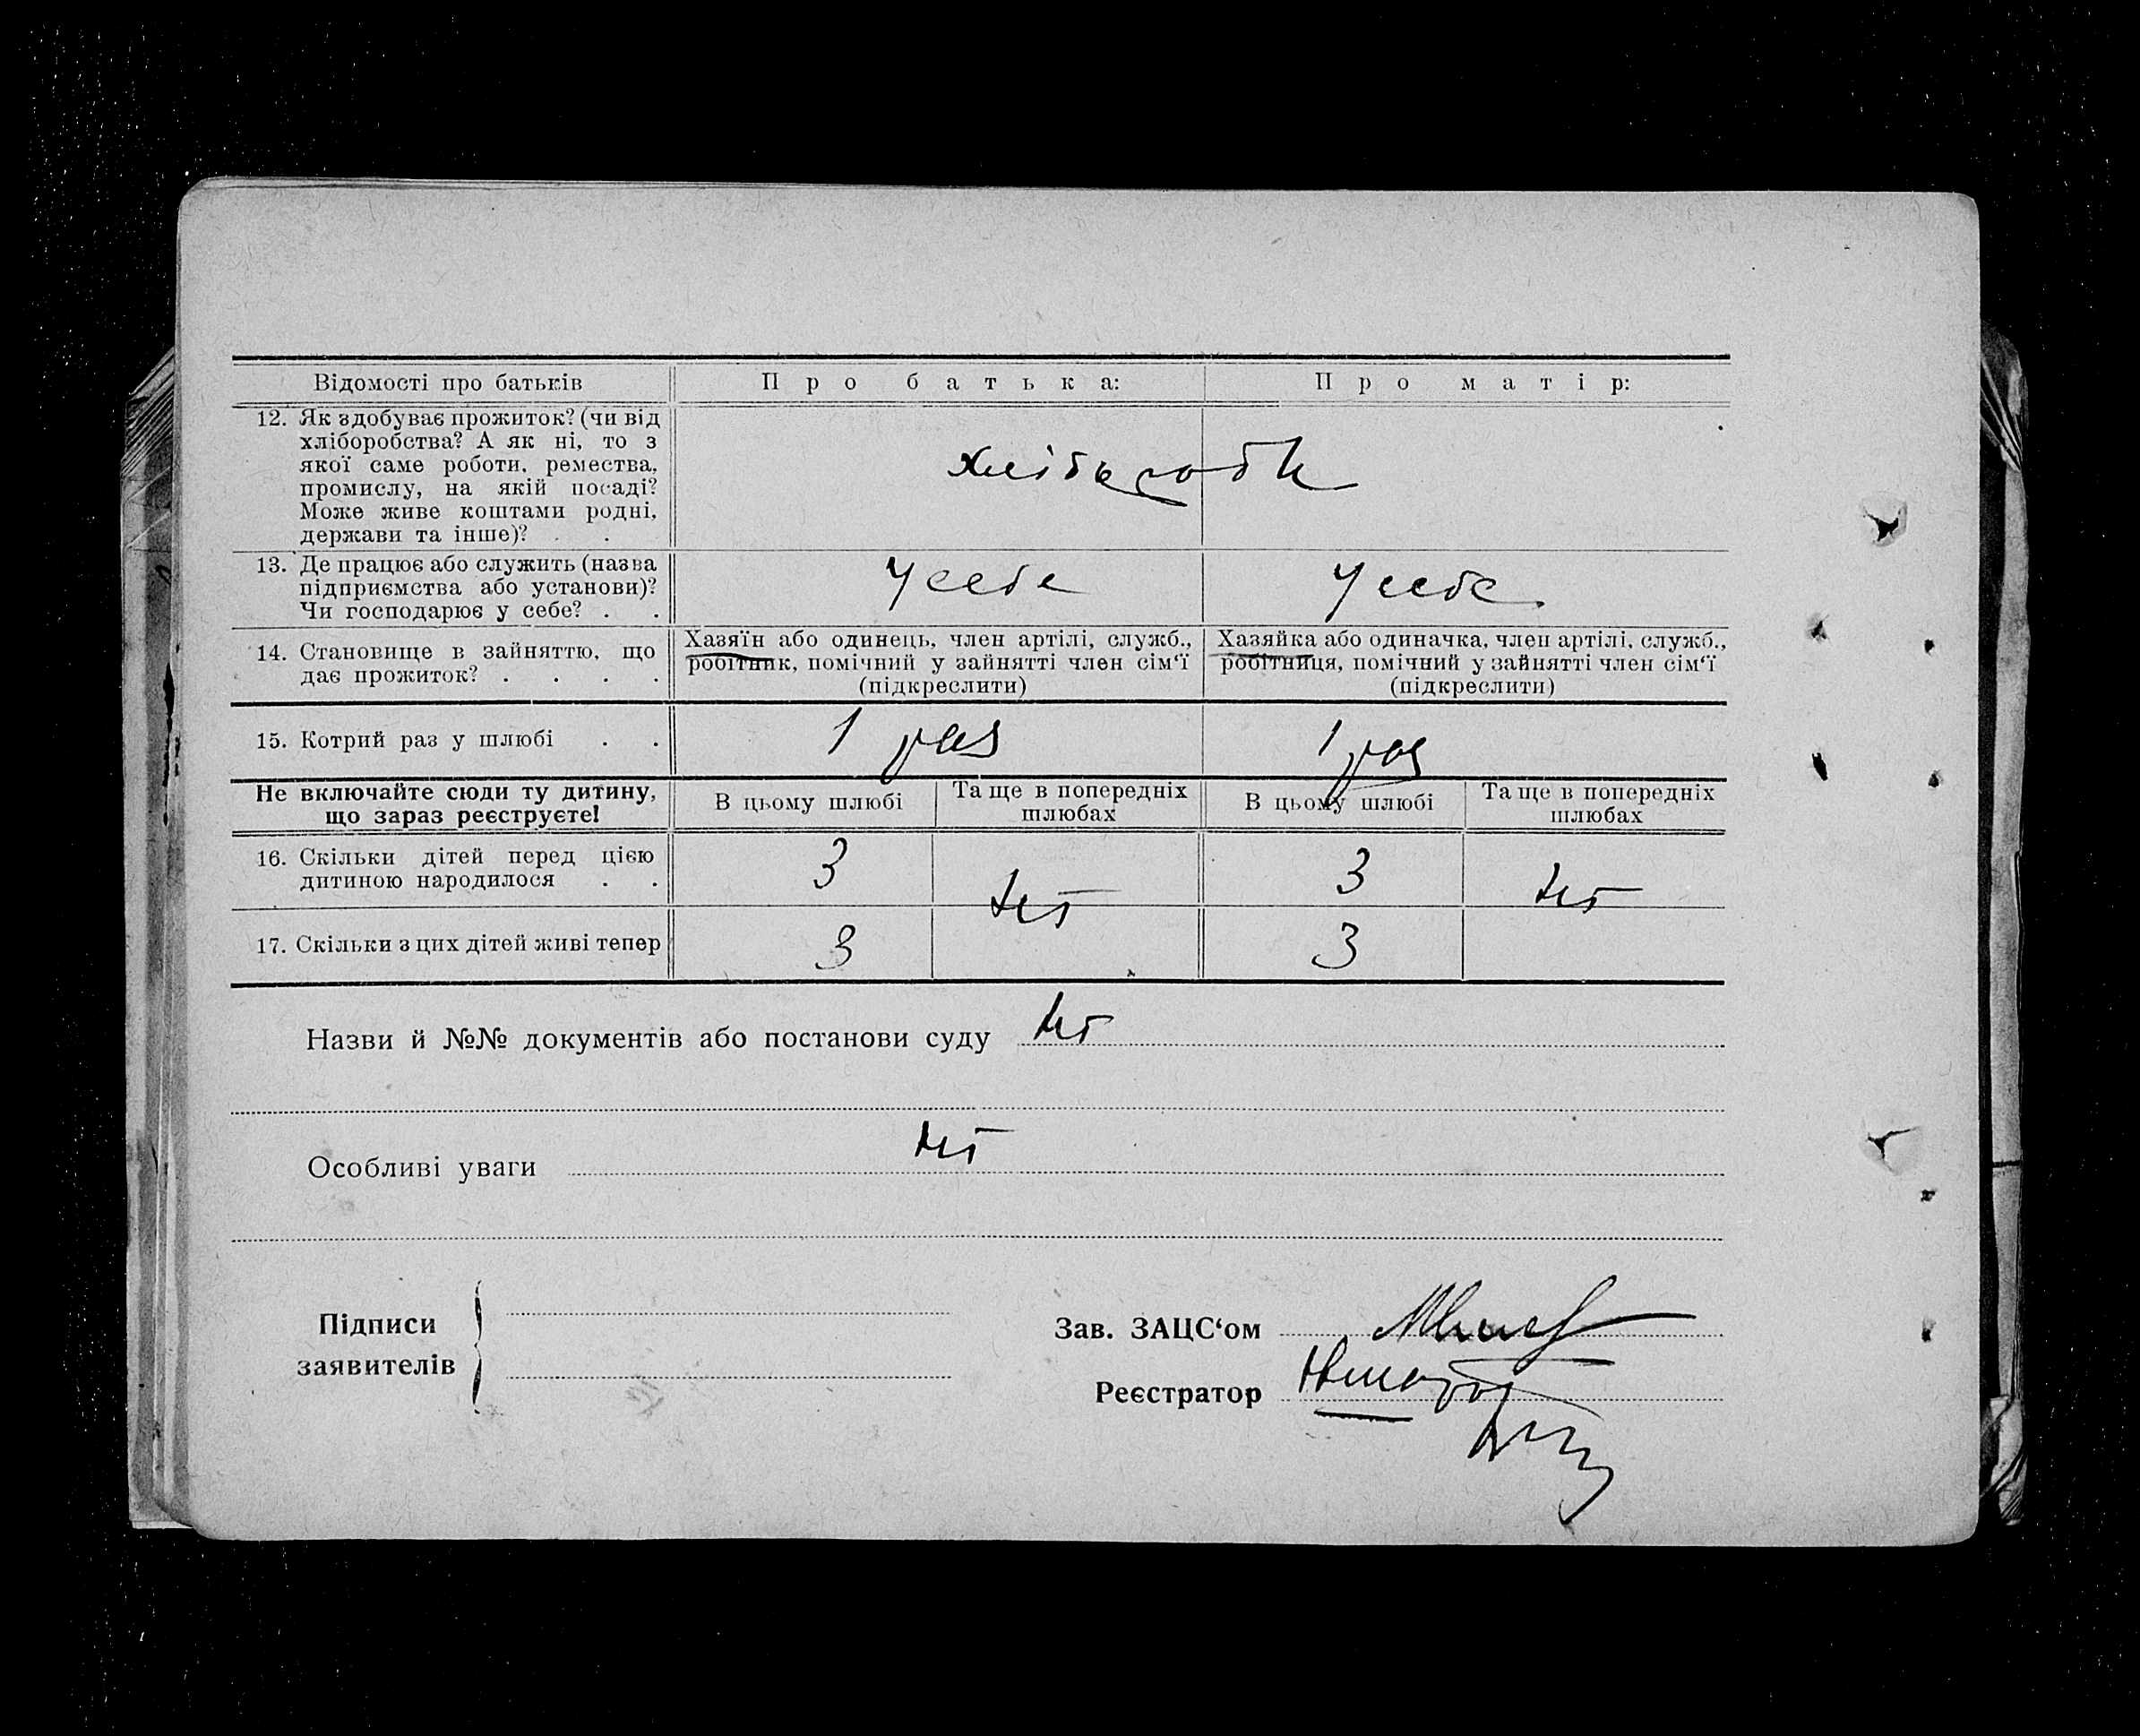 Відомості про батьків
Про батька:
Про матір:
12. Як здобуває прожиток? (чи від
хліборобства? А як ні, то з
якої саме роботи, ремества,
промислу, на якій посаді?
Може живе коштами родні,
держави та інше)? . .
хлібороби
13. Де працює або служить (назва
підприємства або установи)?
Чи господарює у себе? . .
У себе
У себе
14. Становище в зайняттю, що
дає прожиток? . . . .
Хазяїн або одинець, член артілі, служб.,
робітник, помічний у зайнятті член сім‘ї
(підкреслити)
Хазяйка або одиначка, член артілі, служб.,
робітниця, помічний у зайнятті член сім‘ї
(підкреслити)
15. Котрий раз у шлюбі . .
1 раз
1 раз
Не включайте сюди ту дитину,
що зараз реєструєте!
В цьому шлюбі
Та ще в попередніх
шлюбах
В цьому шлюбі
Та ще в попередніх
шлюбах
16. Скільки дітей перед цією
дитиною народилося . .
3
ні
3
ні
17. Скільки з цих дітей живі тепер
3
3
Назви й №№ документів або постанови суду
Особливі уваги
Підписи
заявителів
Зав. ЗАЦС‘ом
Реєстратор